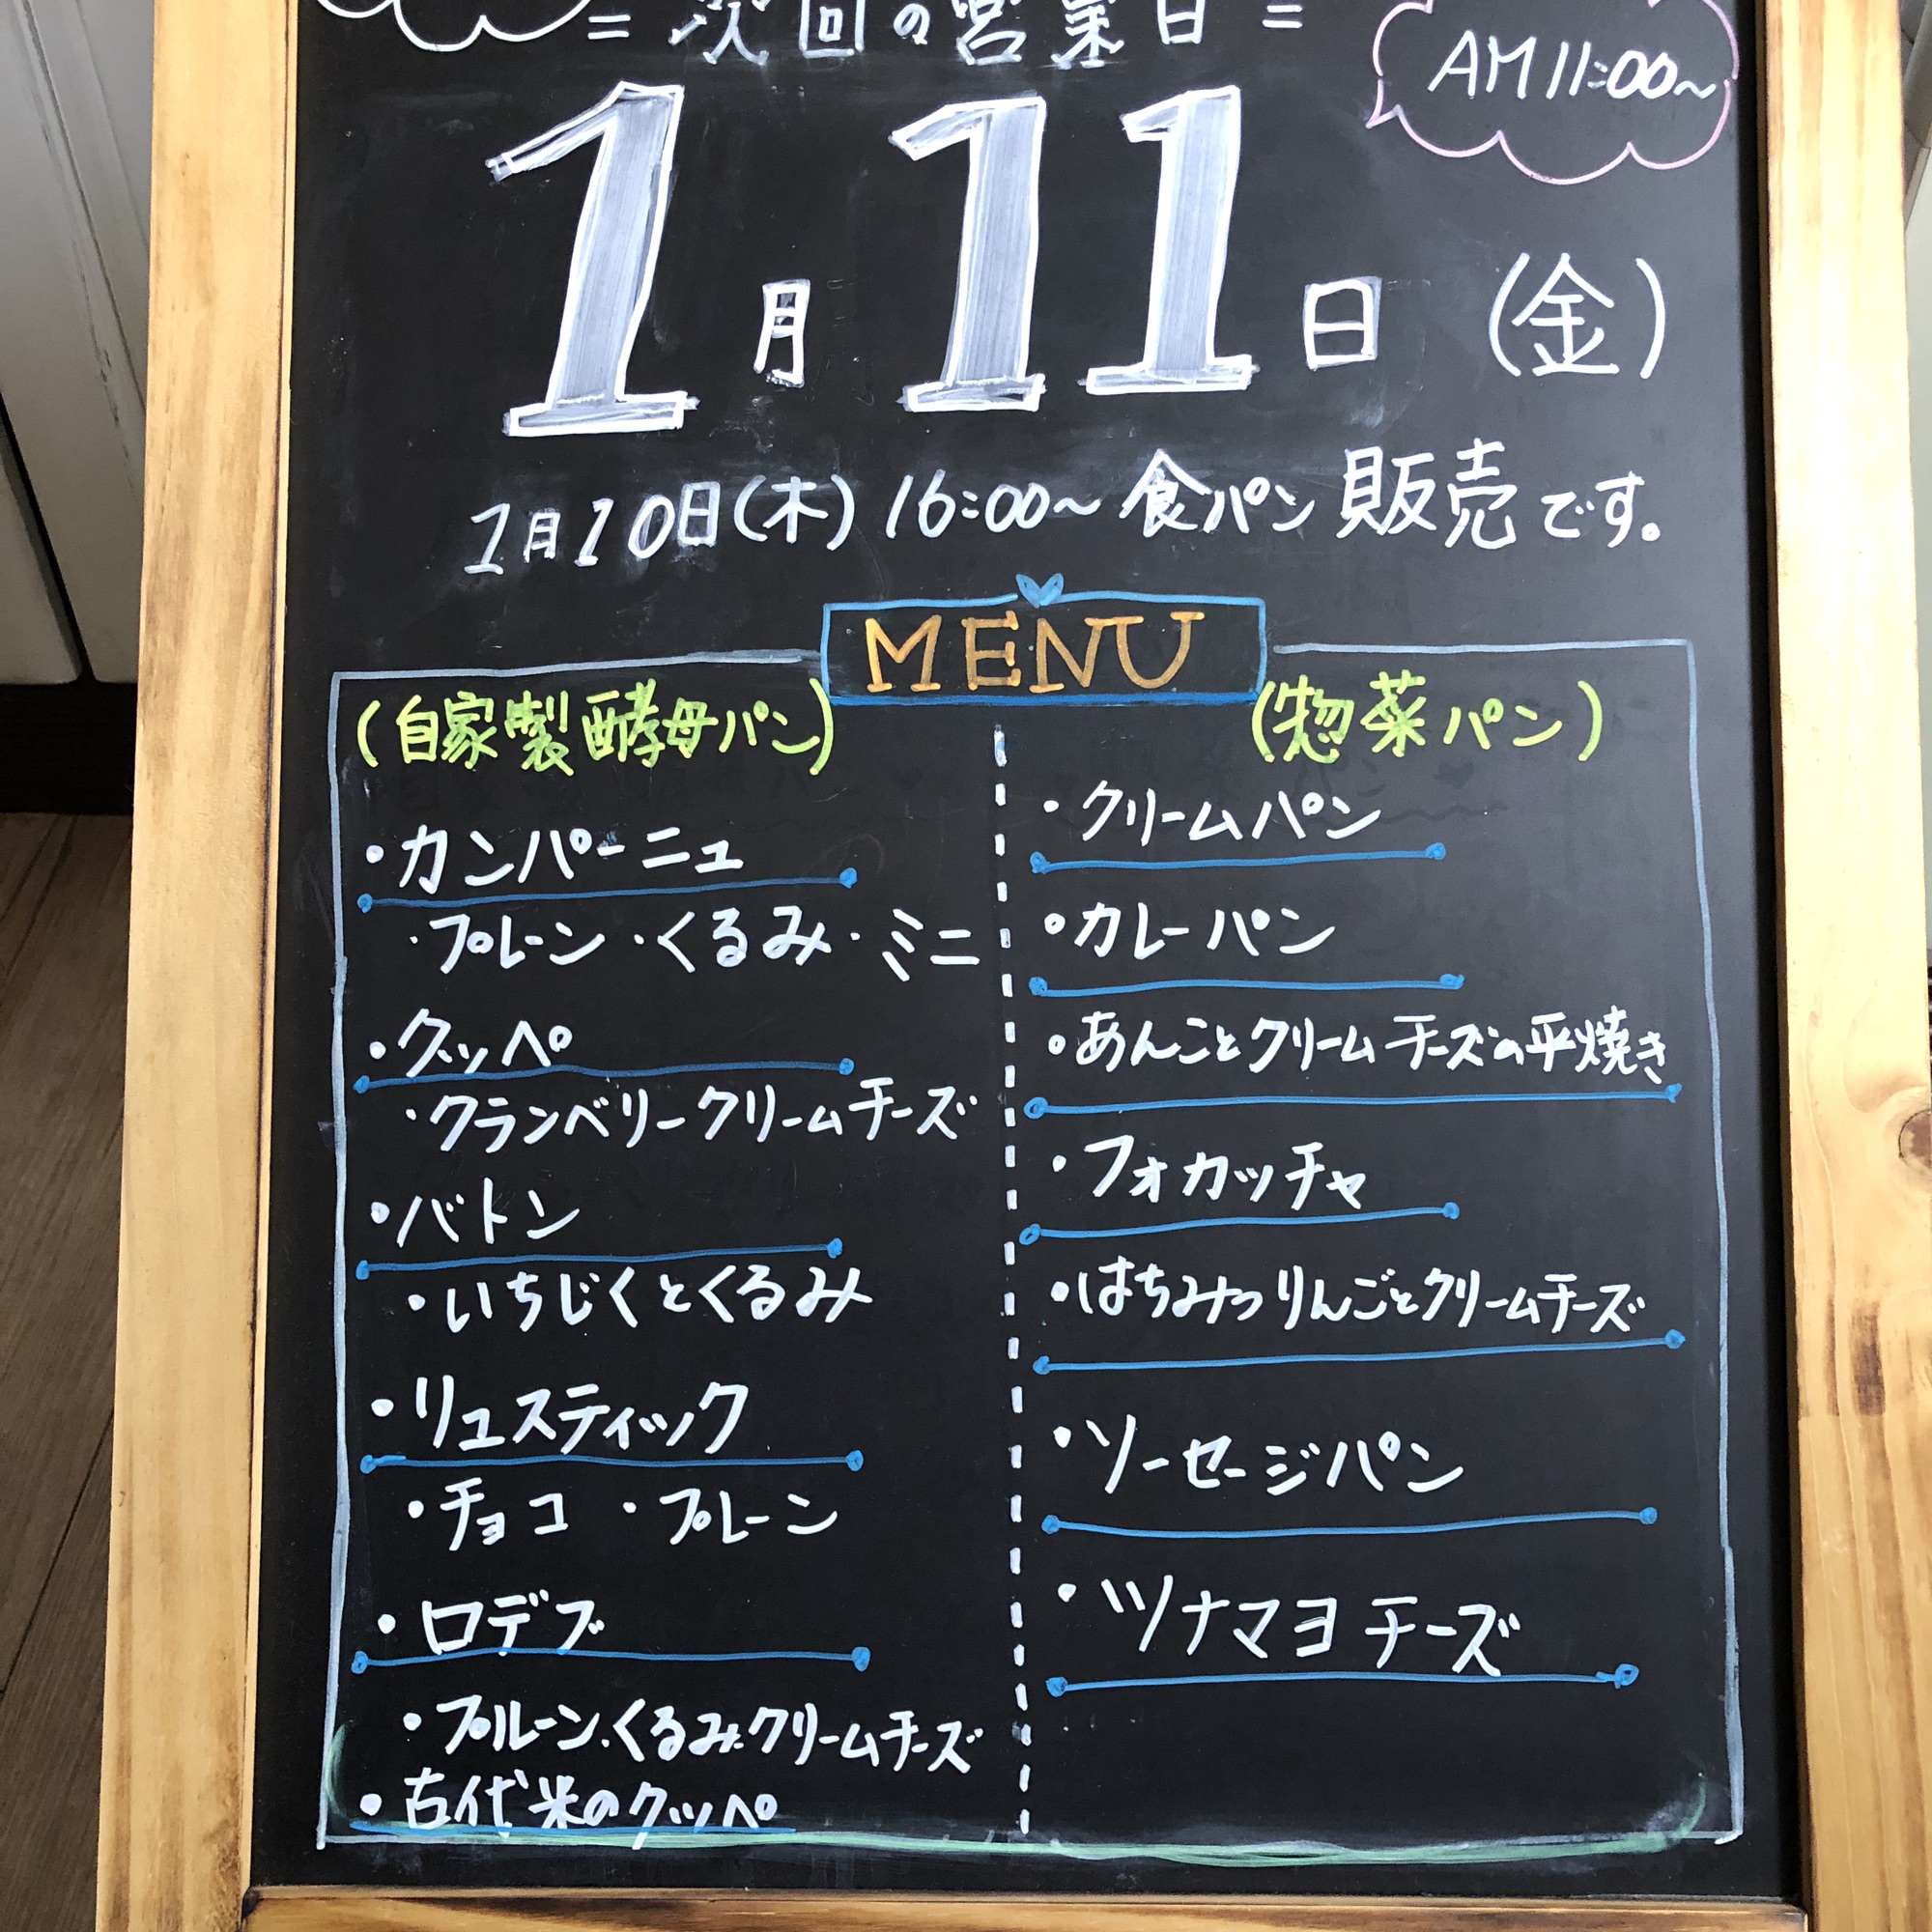 = 次回の営業日 =
AM 11:00~
1月11日(金)
1月10日(木) 16:00~ 食パン販売です。
MENU
(自家製酵母パン)
・カンパーニュ
・プレーン ・くるみ ・ミニ
・クッペ
・クランベリークリームチーズ
・バトン
・いちじくとくるみ
・リュスティック
・チョコ ・プレーン
・ロデブ
・プルーン、くるみ、クリームチーズ
・古代米のクッペ
(惣菜パン)
・クリームパン
・カレーパン
・あんことクリームチーズの平焼き
・フォカッチャ
・はちみつりんごとクリームチーズ
・ソーセージパン
・ツナマヨチーズ